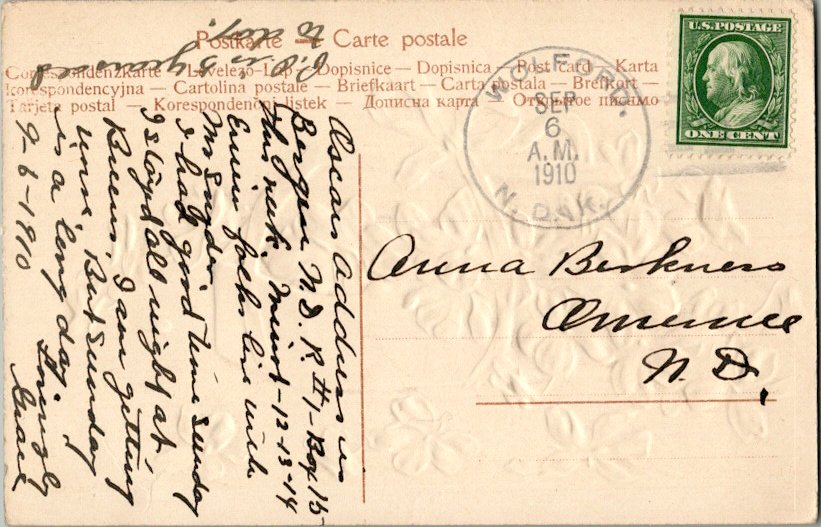 Postkarte — Carte postale
Correspondenzkarte – Levelező-Lap – Dopisnice – Dopisnica – Post card – Karta
korespondencyjna – Cartolina postale – Briefkaart – Carta postala – Brefkort –
Tarjeta postal – Korespondenčni listek – Дописна карта – Открытое письмо
U.S. POSTAGE
ONE CENT
WOLFORD,
SEP
6
A.M.
1910
N. DAK.
Anna Berkness
Omemee
N. D.
Oscars Address is
Bergen N. D. R #1, Box 15
this week Minot - 12-13-14
folks live with
Mr Snyder
I had good time Sunday
I stayed all night at
I am getting
But Sunday
is a long day.
Lovingly
Grace
9-6-1910
P.O. in
to day.